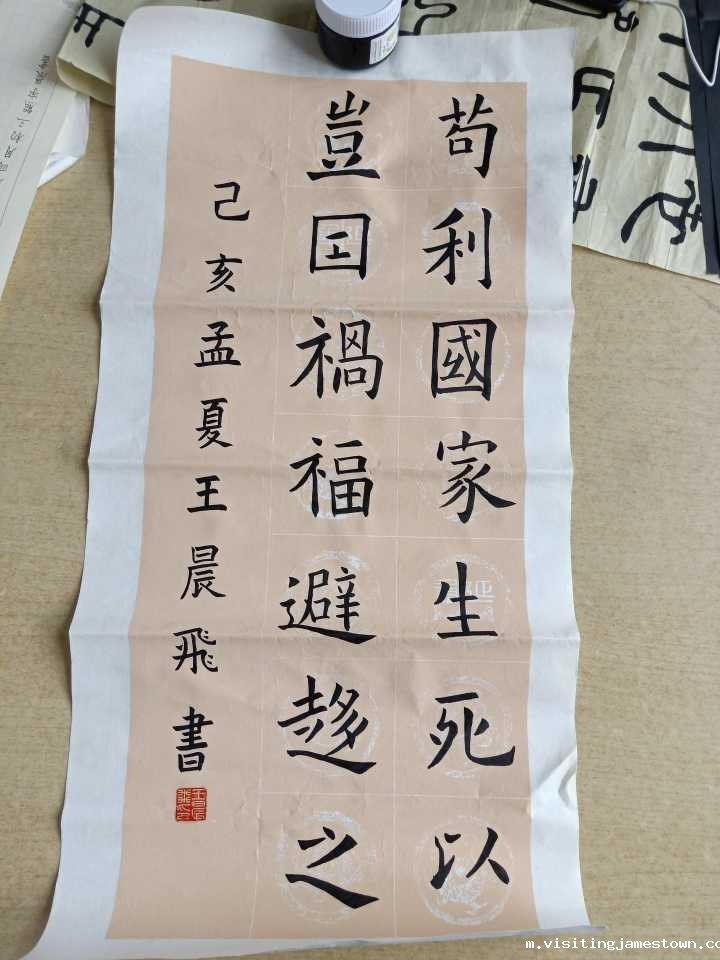 苟利國家生死以
豈囙禍福避趍之
己亥孟夏王晨飛書
m.visitingjamestown.co